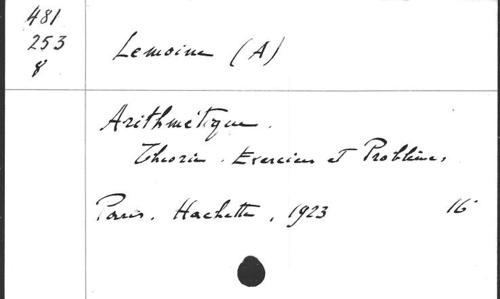 481
253
8
Lemoine (A)
Arithmétique.
Théorie. Exercices et Problèmes,
Paris. Hachette, 1923 16°